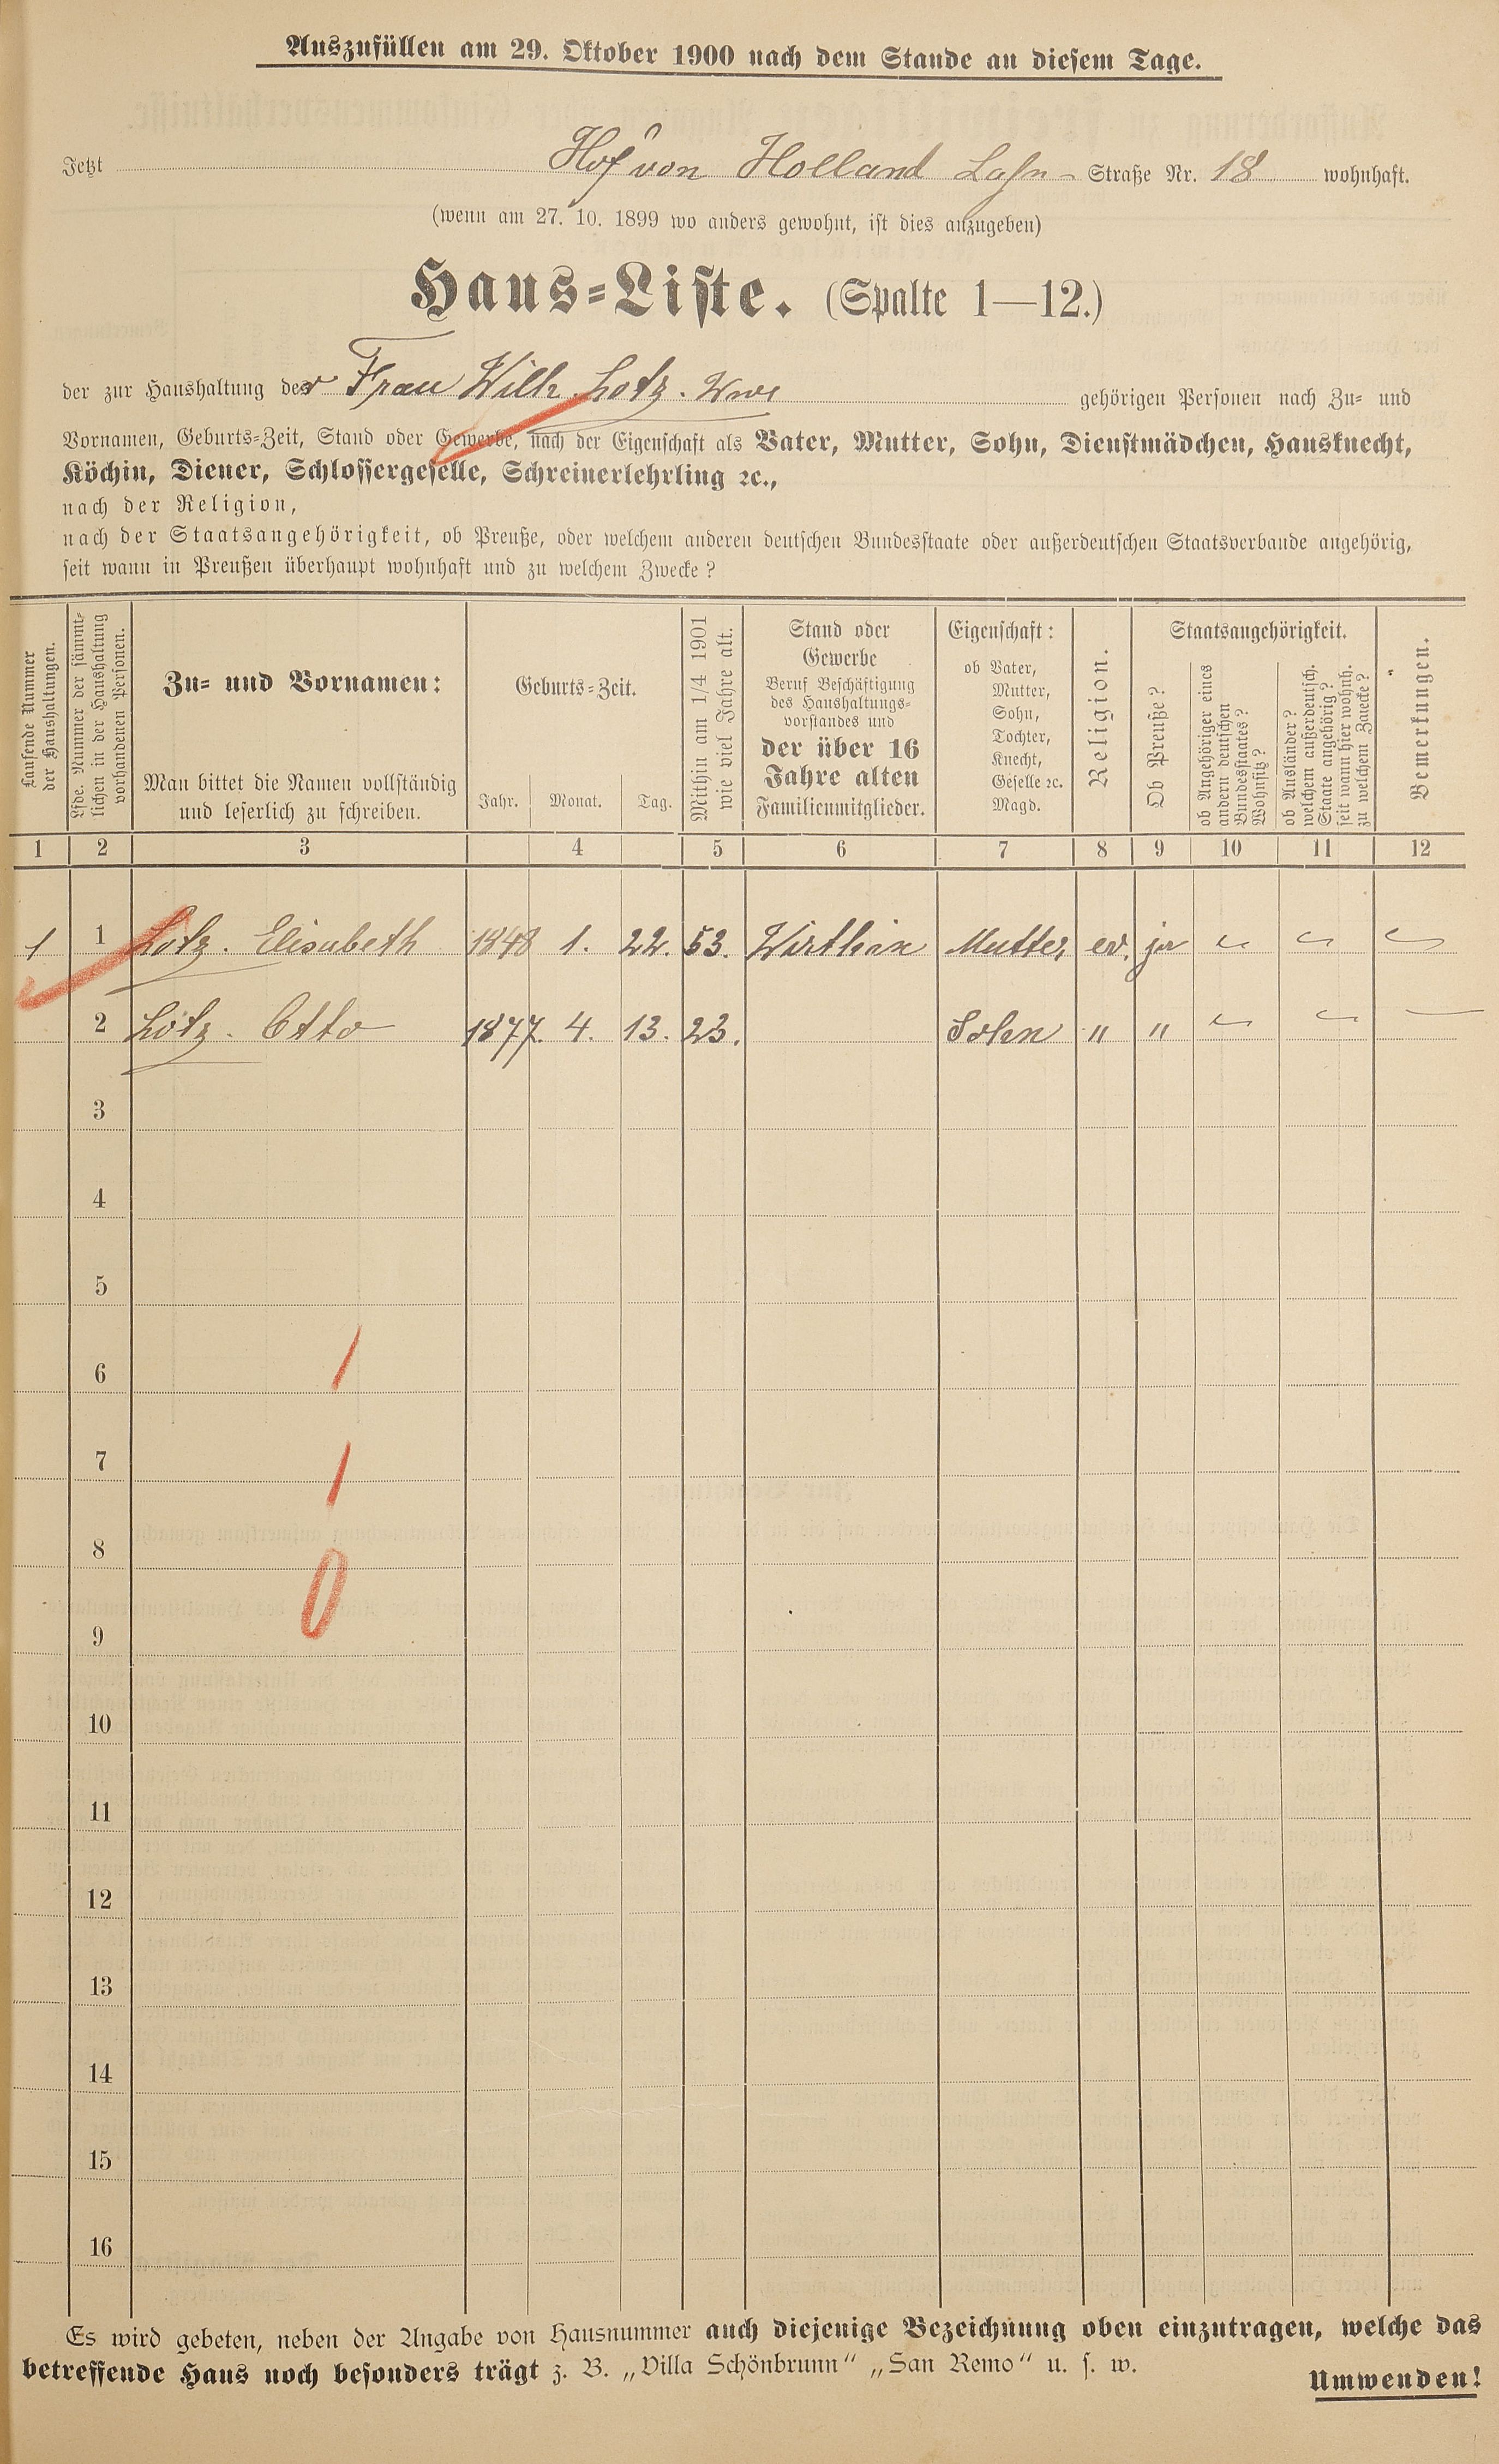 Auszufüllen am 29. Oktober 1900 nach dem Stande an diesem Tage.
Jetzt Hof von Holland Lahn - Straße Nr. 18 wohnhaft.
(wenn am 27. 10. 1899 wo anders gewohnt, ist dies anzugeben)
Haus-Liste. (Spalte 1—12.)
der zur Haushaltung der Frau Wilh. Lotz. Wwe gehörigen Personen nach Zu- und
Vornamen, Geburts-Zeit, Stand oder Gewerbe, nach der Eigenschaft als Vater, Mutter, Sohn, Dienstmädchen, Hausknecht,
Köchin, Diener, Schlossergeselle, Schreinerlehrling ꝛc.,
nach der Religion,
nach der Staatsangehörigkeit, ob Preuße, oder welchem anderen deutschen Bundesstaate oder außerdeutschen Staatsverbande angehörig,
seit wann in Preußen überhaupt wohnhaft und zu welchem Zwecke?
Laufende Nummer
der Haushaltungen.
Lfde. Nummer der sämmt-
lichen in der Haushaltung
vorhandenen Personen.
Zu- und Vornamen:
Man bittet die Namen vollständig
und leserlich zu schreiben.
Geburts-Zeit.
Jahr. Monat. Tag.
Mithin am 1/4 1901
wie viel Jahre alt.
Stand oder
Gewerbe
Beruf Beschäftigung
des Haushaltungs-
vorstandes und
der über 16
Jahre alten
Familienmitglieder.
Eigenschaft:
ob Vater,
Mutter,
Sohn,
Tochter,
Knecht,
Geselle ꝛc.
Magd.
Religion.
Staatsangehörigkeit.
Ob Preuße?
ob Angehöriger eines
andern deutschen
Bundesstaates?
Wohnsitz?
ob Ausländer?
welchem außerdeutsch.
Staate angehörig?
seit wann hier wohnh.
zu welchem Zwecke?
Bemerkungen.
1 2 3 4 5 6 7 8 9 10 11 12
1 1 Lotz. Elisabeth 1848 1. 22. 53. Wirthin Mutter ev. ja
2 Lotz. Otto 1877. 4. 13. 23. Sohn " "
3
4
5
6 1
7 1
8
0
9
10
11
12
13
14
15
16
Es wird gebeten, neben der Angabe von Hausnummer auch diejenige Bezeichnung oben einzutragen, welche das
betreffende Haus noch besonders trägt z. B. „Villa Schönbrunn" „San Remo" u. s. w.
Umwenden!